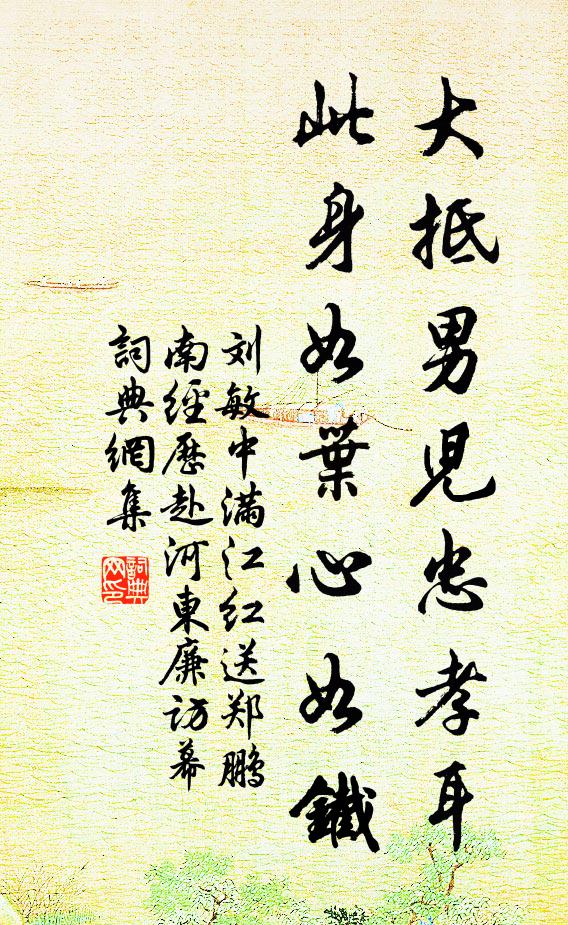 大抵男兒忠孝耳
此身如葉心如鐵
刘敏中满江红送郑鹏
南經歷赴河東廉訪幕
詞典網集
詞典
网印